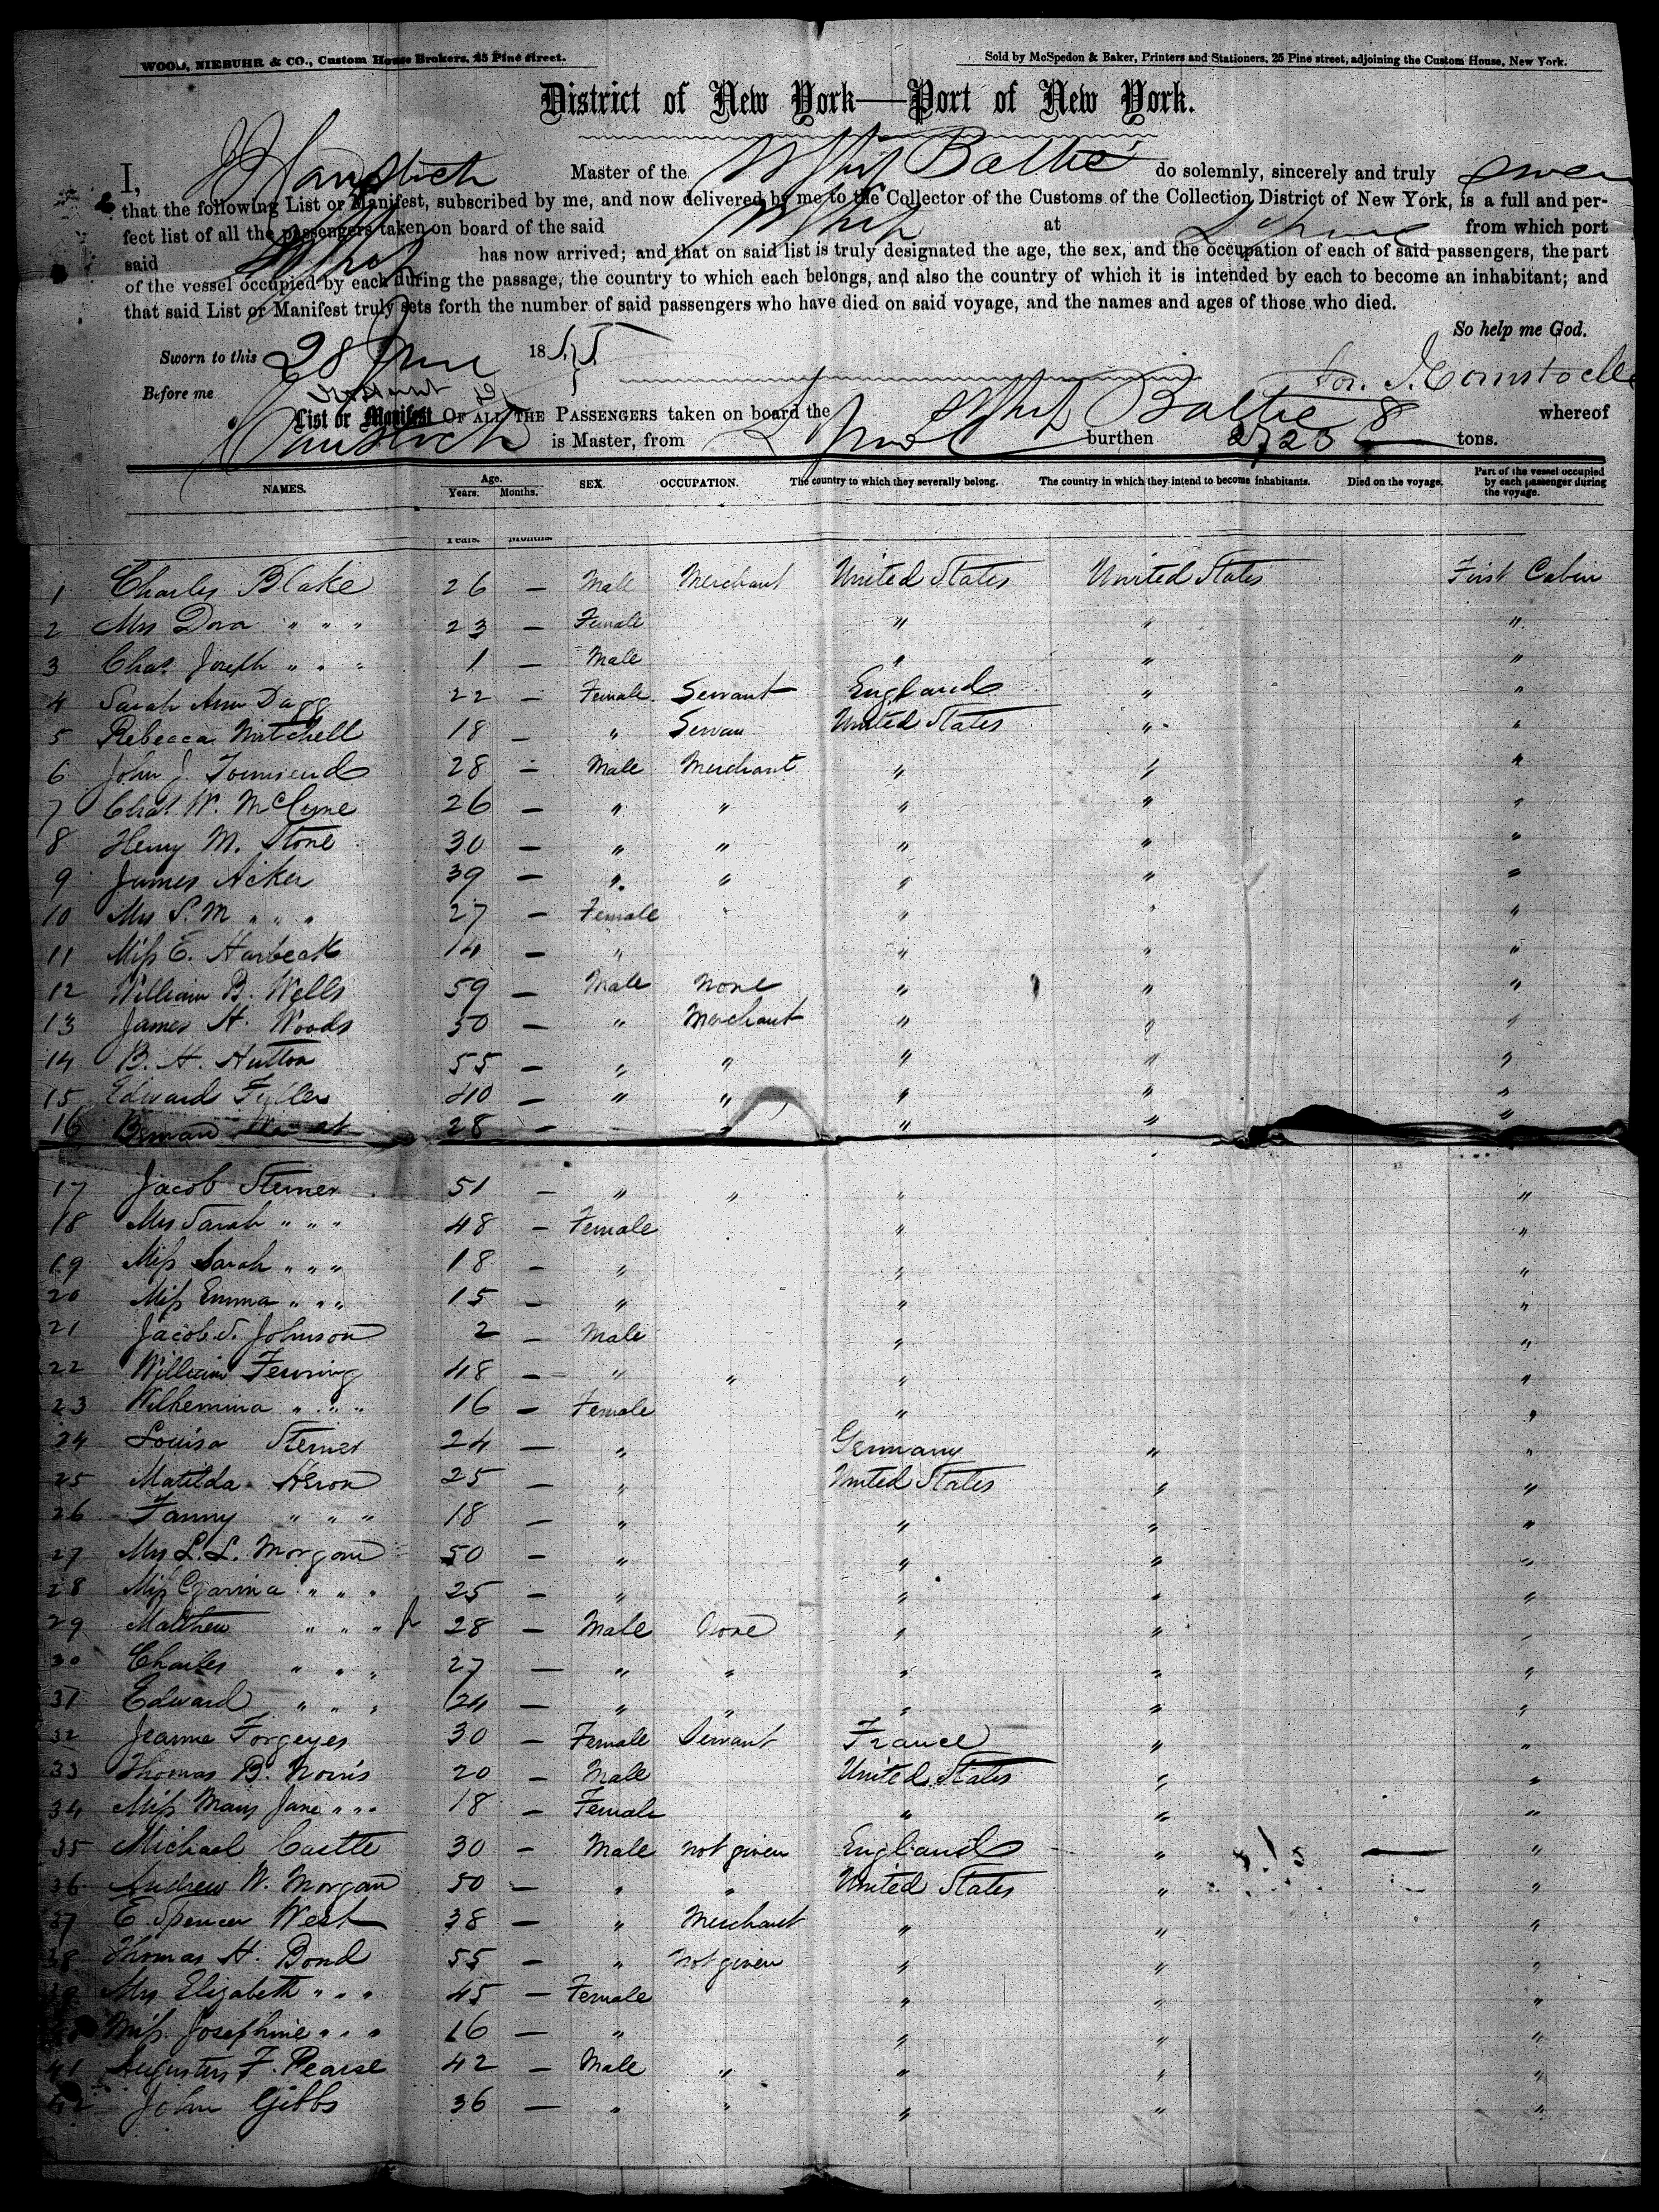 WOOD, NIEBUHR & CO., Custom House Brokers, 25 Pine street.
Sold by McSpedon & Baker, Printers and Stationers, 25 Pine street, adjoining the Custom House, New York.
District of New York—Port of New York.
I, Master of the Baltic do solemnly, sincerely and truly swear
that the following List or Manifest, subscribed by me, and now delivered by me to the Collector of the Customs of the Collection District of New York, is a full and per-
fect list of all the passengers taken on board of the said at from which port
said has now arrived; and that on said list is truly designated the age, the sex, and the occupation of each of said passengers, the part
of the vessel occupied by each during the passage, the country to which each belongs, and also the country of which it is intended by each to become an inhabitant; and
that said List or Manifest truly sets forth the number of said passengers who have died on said voyage, and the names and ages of those who died.
So help me God.
Sworn to this 28 June 1855
Before me Jos. J. Comstock
List or Manifest OF ALL THE PASSENGERS taken on board the Baltic whereof
Comstock is Master, from L'pool burthen tons.
NAMES. Age. Years. Months. SEX. OCCUPATION. The country to which they severally belong. The country in which they intend to become inhabitants. Died on the voyage. Part of the vessel occupied by each passenger during the voyage.
Years. Months.
1 Charles Blake 26 — Male Merchant United States United States First Cabin
2 Mrs Dora " " " 23 — Female " " "
3 Chas. Joseph " " " 1 — Male " " "
4 Sarah Ann Dagg 22 — Female Servant England " "
5 Rebecca Mitchell 18 — " Servan United States " "
6 John J. Townsend 28 — Male Merchant " " "
7 Chas. W. McClyne 26 — " " " " "
8 Henry M. Stone 30 — " " " " "
9 James Acker 39 — " " " " "
10 Mrs S. M " " " 27 — Female " " "
11 Miss E. Harbeck 14 — " " " "
12 William B. Wells 59 — Male None " " "
13 James H. Woods 50 — " Merchant " " "
14 B. H. Hutton 55 — " " " " "
15 Edward Fuller 40 — " " " " "
16 28 — " " " "
17 Jacob Steiner 51 — " " " "
18 Mrs Sarah " " " 48 — Female " "
19 Miss Sarah " " " 18 — " " "
20 Miss Emma " " " 15 — " " "
21 Jacob S. Johnson 2 — Male " "
22 William Fenning 48 — " " " "
23 Wilhemina " " " 16 — Female " "
24 Louisa Steiner 24 — " Germany " "
25 Matilda Heron 25 — " United States " "
26 Fanny " " " 18 — " " " "
27 Mrs L. L. Morgan 50 — " " " "
28 Miss Czarina " " " 25 — " " " "
29 Matthew " " " Jr 28 — Male None " " "
30 Charles " " " 27 — " " " " "
31 Edward " " " 24 — " " " " "
32 Jeanne Forgeyes 30 — Female Servant France " "
33 Thomas B. Norris 20 — Male United States " "
34 Miss Mary Jane " " " 18 — Female " " "
35 Michael Castle 30 — Male not given England " — "
36 Andrew W. Morgan 50 — " " United States " "
37 E Spencer West 38 — " Merchant " " "
38 Thomas H. Bond 55 — " not given " " "
39 Mrs Elizabeth " " " 45 — Female " " "
40 Miss. Josephine " " " 16 — " " " "
41 Augustus F. Pearse 42 — Male " " " "
42 John Gibbs 36 — " " " " "